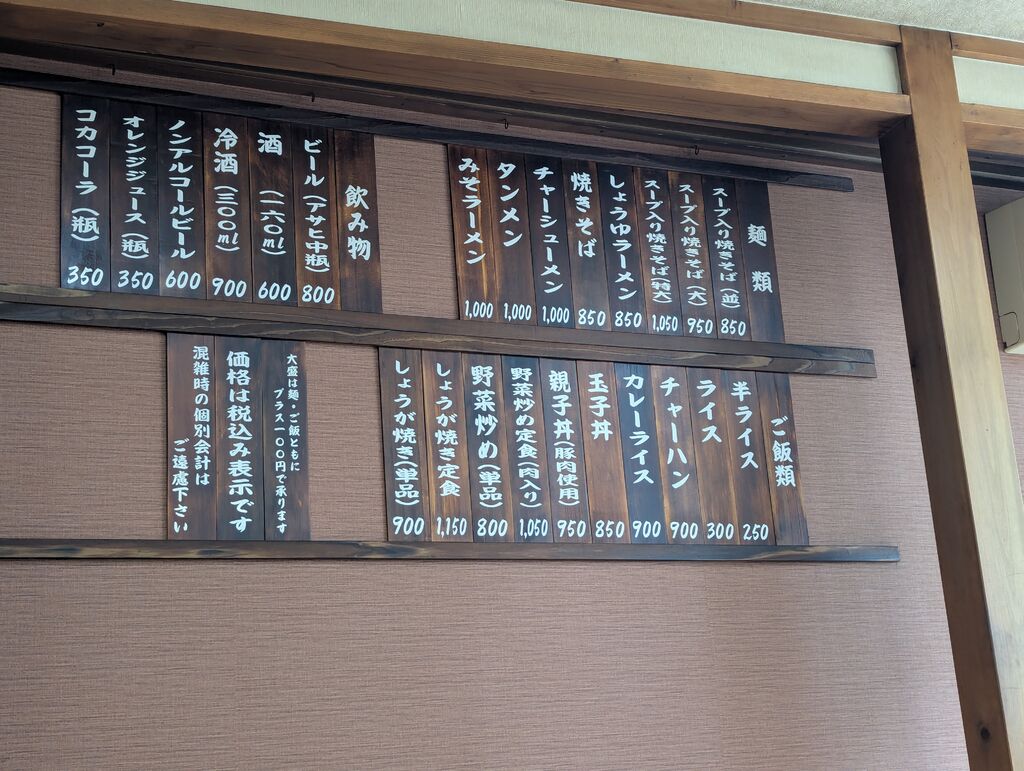 麺類
スープ入り焼きそば(並) 850
スープ入り焼きそば(大) 950
スープ入り焼きそば(特大) 1,050
しょうゆラーメン 850
焼きそば 850
チャーシューメン 1,000
タンメン 1,000
みそラーメン 1,000
飲み物
ビール(アサヒ中瓶) 800
酒(一六〇ml) 600
冷酒(三〇〇ml) 900
ノンアルコールビール 600
オレンジジュース(瓶) 350
コカコーラ(瓶) 350
ご飯類
半ライス 250
ライス 300
チャーハン 900
カレーライス 900
玉子丼 850
親子丼(豚肉使用) 950
野菜炒め定食(肉入り) 1,050
野菜炒め(単品) 800
しょうが焼き定食 1,150
しょうが焼き(単品) 900
大盛は麺・ご飯ともに
プラス一〇〇円で承ります
価格は税込み表示です
混雑時の個別会計は
ご遠慮下さい